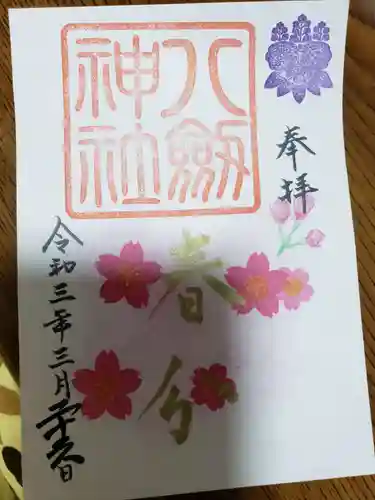 奉拝
八劔
神社
春分
令和三年三月二十六日